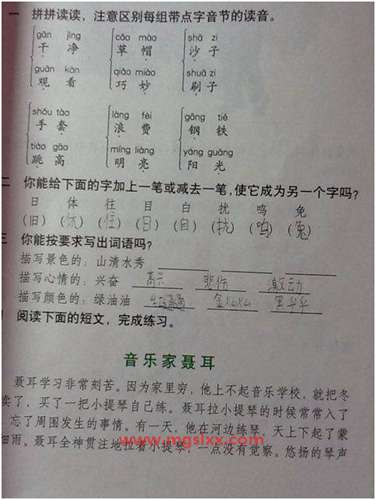 一 拼拼读读，注意区别每组带点字音节的读音。
gān jìng cǎo mào shā zi
干 净 草 帽 沙 子
guān kàn qiǎo miào shuā zi
观 看 巧 妙 刷 子
shǒu tào làng fèi gāng tiě
手 套 浪 费 钢 铁
tiào gāo míng liàng yáng guāng
跳 高 明 亮 阳 光
二 你能给下面的字加上一笔或减去一笔，使它成为另一个字吗？
日 体 往 目 白 扰 鸣 免
（旧）（休）（住）（日）（自）（拢）（呜）（兔）
三 你能按要求写出词语吗？
描写景色的：山清水秀
描写心情的：兴奋 高兴 悲伤 激动
描写颜色的：绿油油 金灿灿 黑乎乎
阅读下面的短文，完成练习。
音乐家聂耳
聂耳学习非常刻苦。因为家里穷，他上不起音乐学校，就把冬
卖了，买了一把小提琴自己练。聂耳拉小提琴的时候常常入了
忘了周围发生的事情。有一天，他在河边练琴，天上下起了蒙
细雨。聂耳全神贯注地拉着小提琴，一点没有觉察。悠扬的琴声
www.mgslxx.com